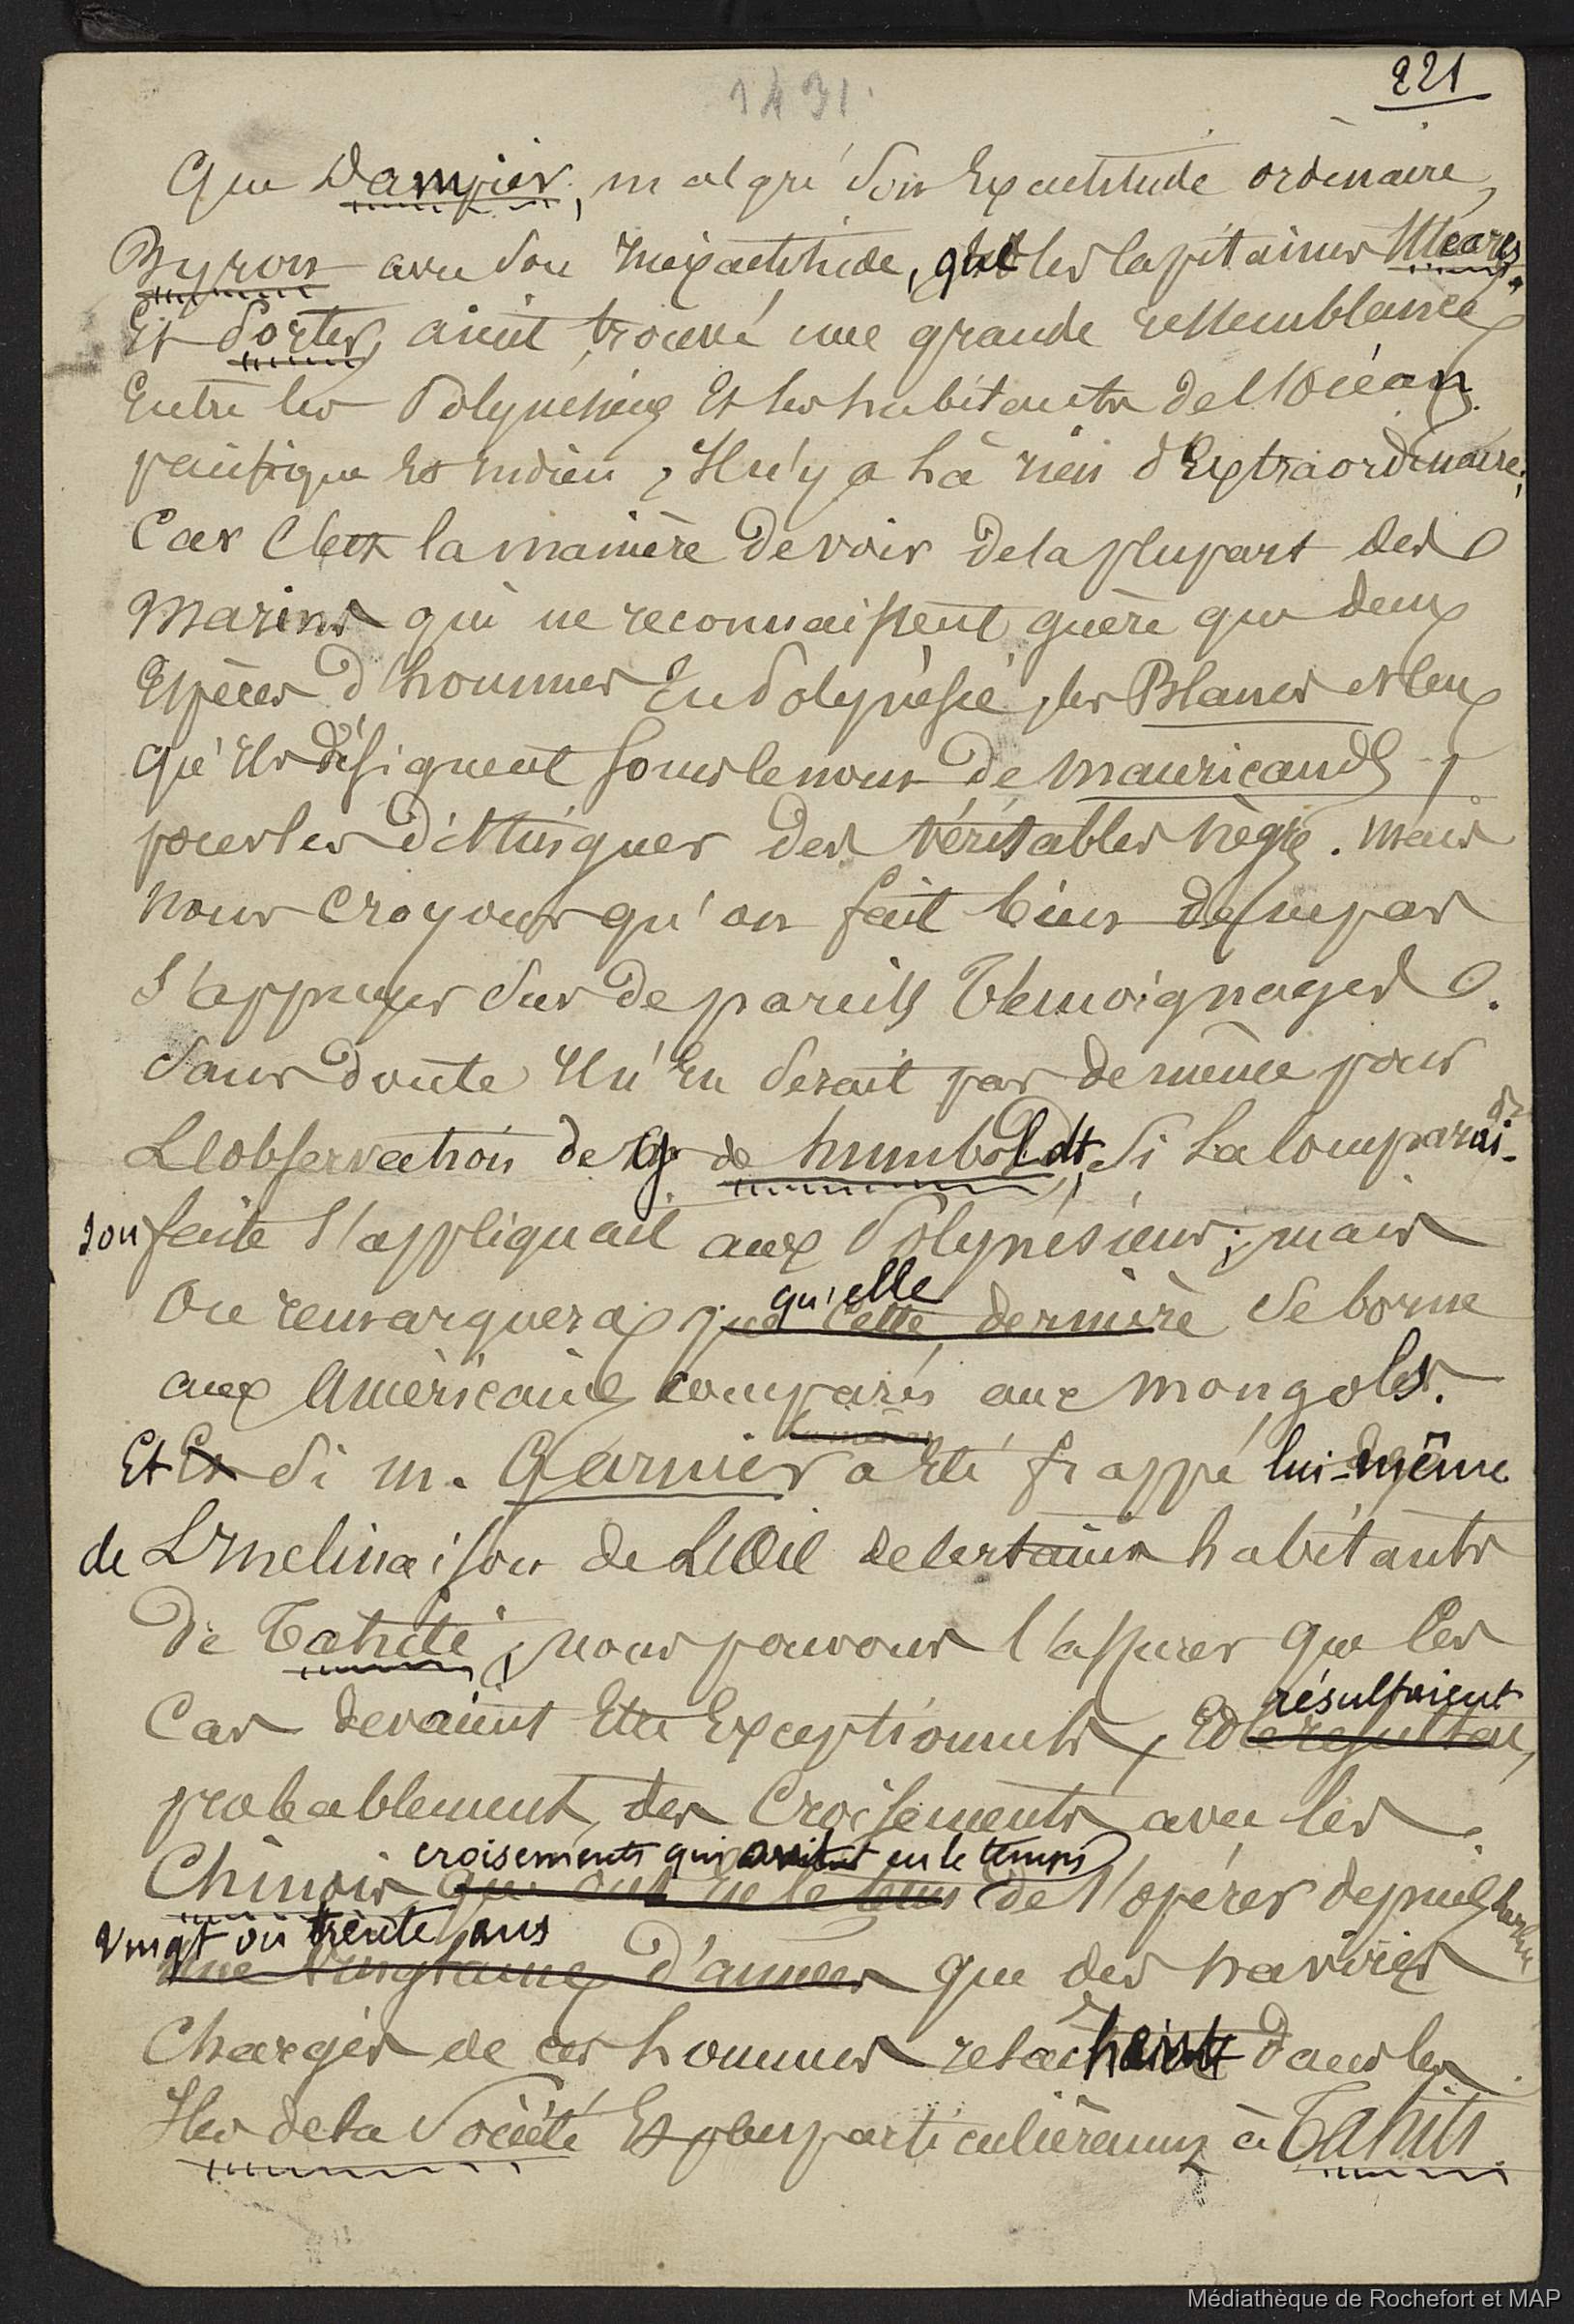 1431.
221
Que Dampier, malgré son Exactitude ordinaire,
Byron avec son Inexactitude, que les Capitaines Meares
Et Porter, aient trouvé une grande ressemblance
Entre les Polynésiens Et les habitants de l'Océan
pacifique Et indien, Il n'y a là rien d'Extraordinaire;
Car C'est la manière de voir de la plupart des
Marins qui ne reconnaissent guère que deux
Espèces d'hommes En Polynésie, les Blancs et ceux
qu'Ils désignent sous le nom de mauricauds,
pour les distinguer des véritables nègres. Mais
nous croyons qu'on fait bien de ne pas
s'appuyer sur de pareils témoignages.
Sans doute Il n'En serait pas de même pour
L'observation de de humboldt, si La comparai-
son faite s'appliquait aux Polynésiens; mais
On remarquera que cette dernière qu'elle se borne
aux Américains comparés aux mongols.
Et Et si M. Garnier a été frappé lui-même
de L'Inclinaison de L'OEil de certains habitants
de Tahiti, nous pouvons l'assurer que les
Cas devaient Etre Exceptionnels, Et résultaient
probablement des Croisements avec les
croisements qui avaient eu le temps
Chinois qui ont eu le temps de s'opérer depuis
vingt ou trente ans
une vingtaine d'années que des navires
Chargés de ces hommes relâchaient dans les
Iles de la Société Et plus particulièrement à Tahiti
Médiathèque de Rochefort et MAP